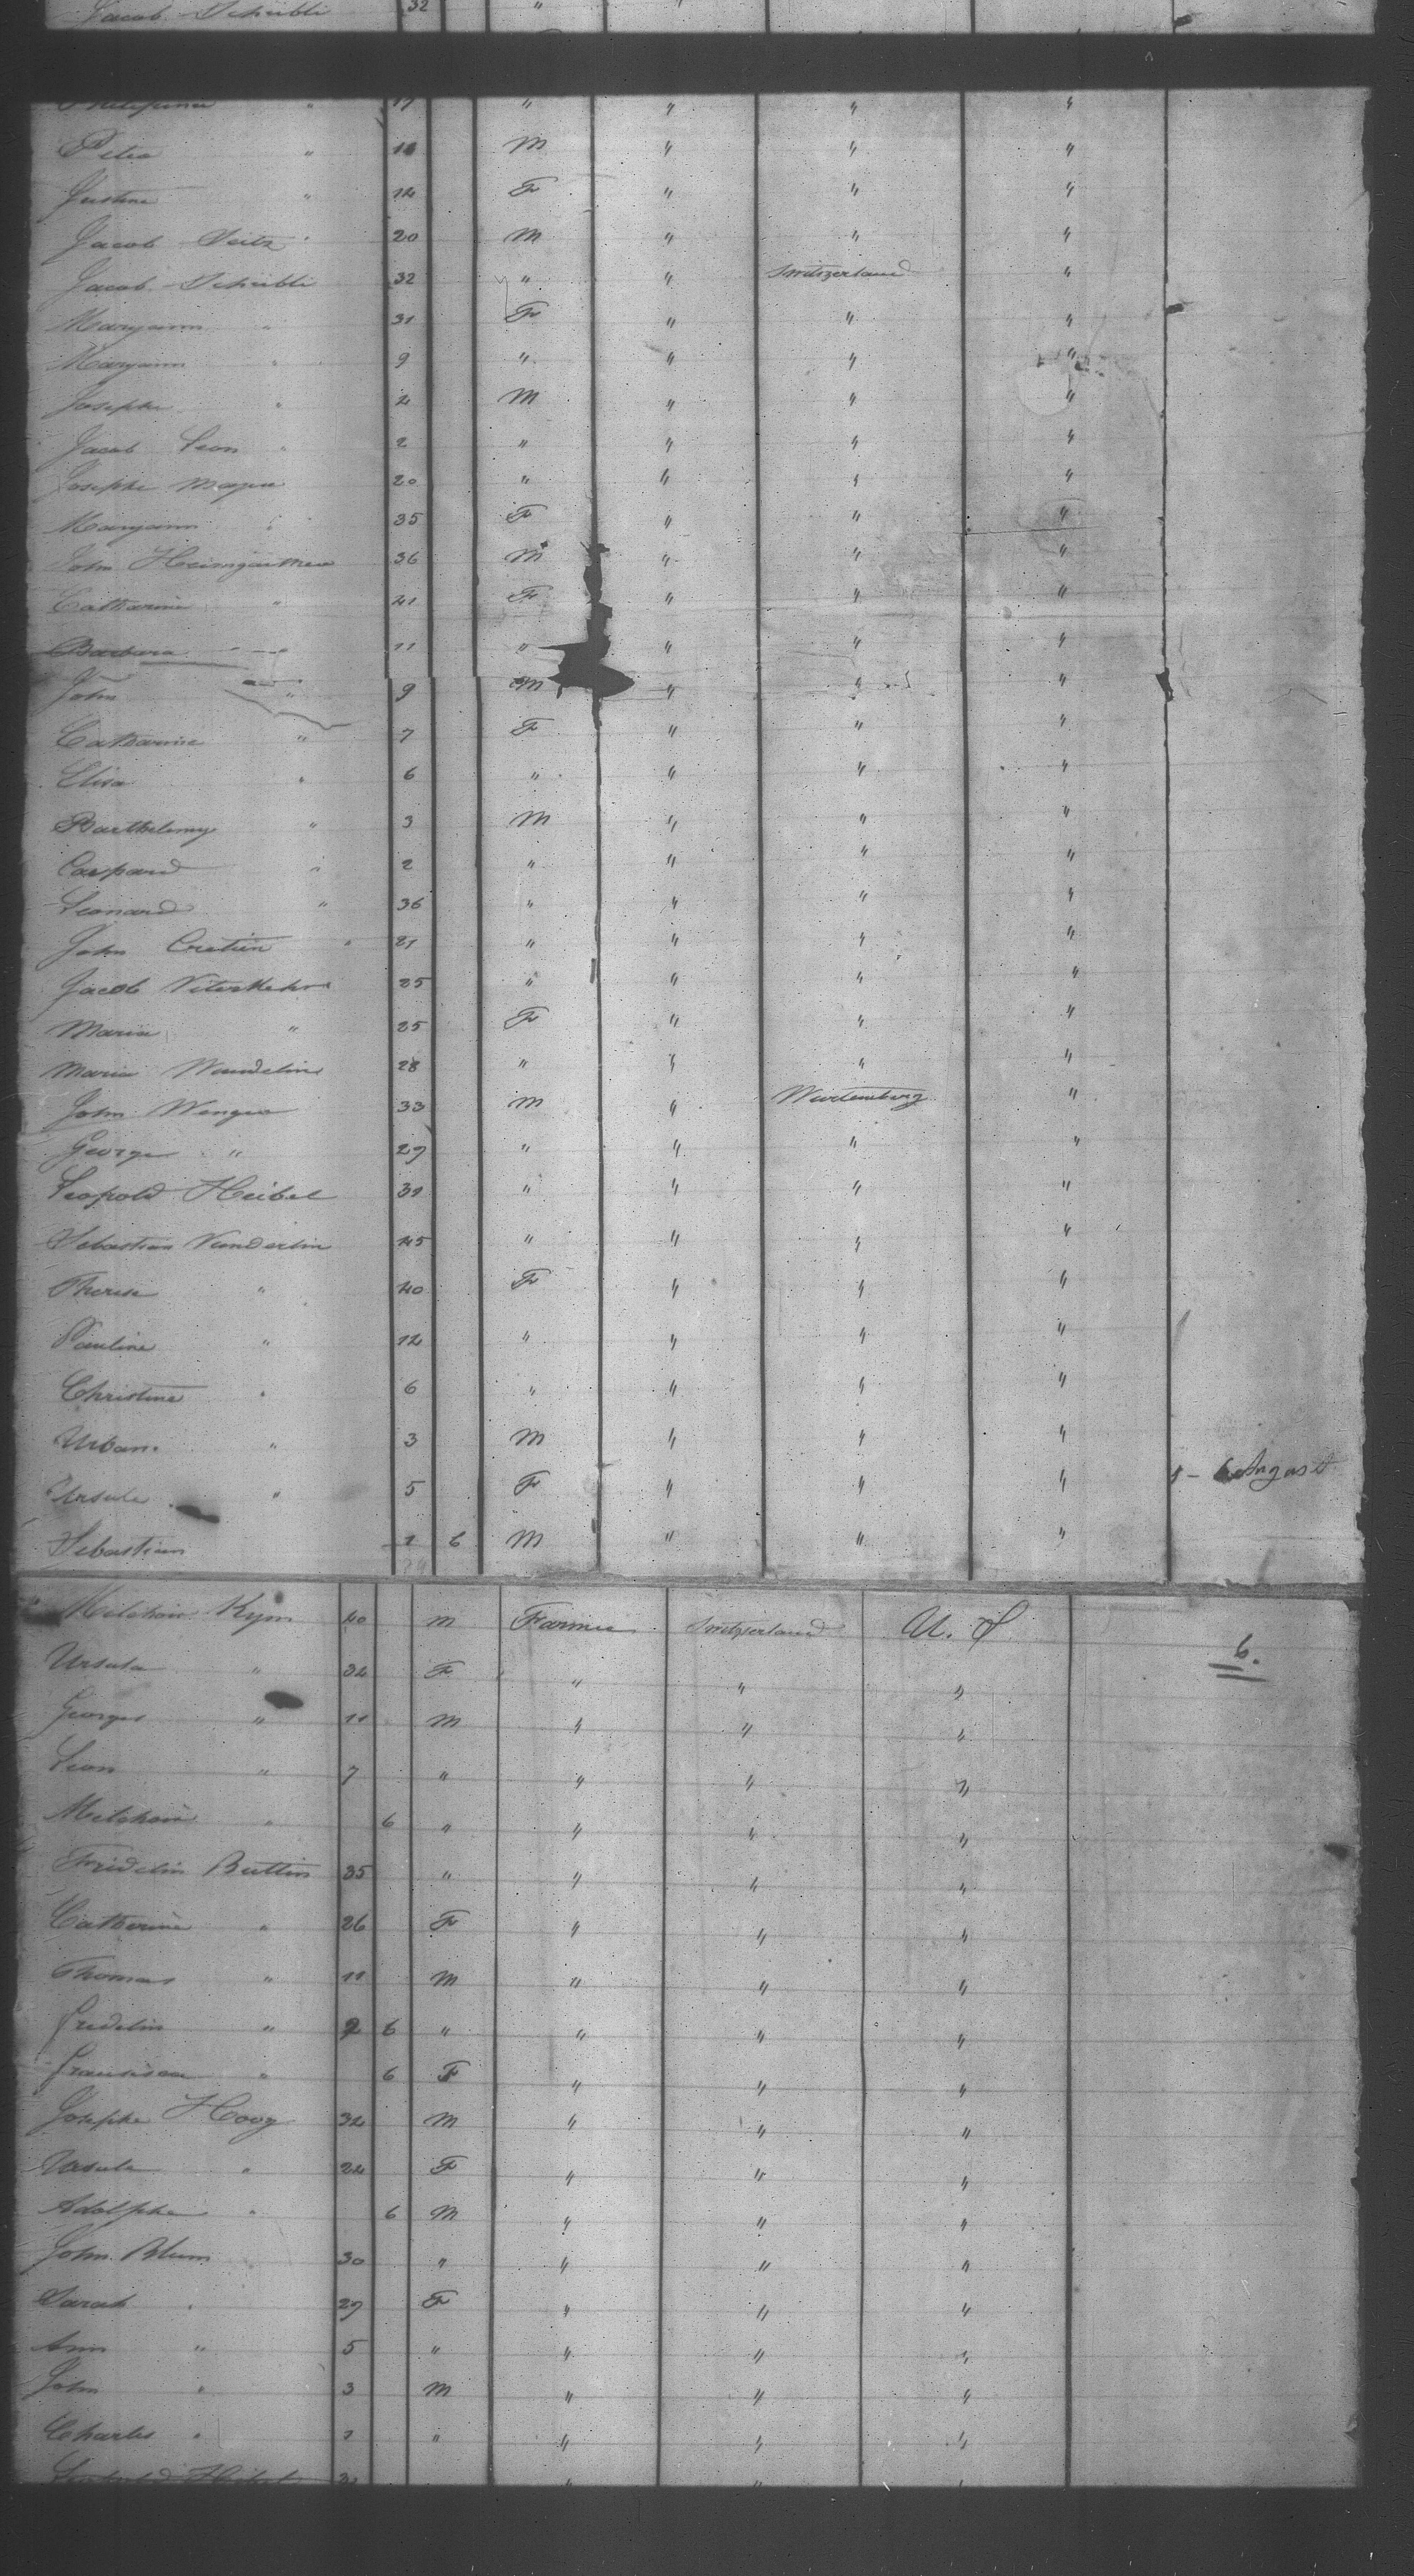 Jacob Scheibli 32 " "
Philipina " 17 " " " "
Peter " 18 M " " "
Justine " 12 F " " "
Jacob Seitz 20 M " " "
Jacob Scheibli 32 " " Switzerland "
Maryann " 31 F " " "
Maryann " 9 " " " "
Josephe " 4 M " " "
Jacob Leon " 2 " " " "
Josephe Mayer 20 " " " "
Maryann " 35 F " " "
John Heimgartner 36 M " " "
Catharine " 41 F " " "
Barbara " 11 " " " "
John " 9 M " " "
Catharine " 7 F " " "
Elisa " 6 " " " "
Barthelemy " 3 M " " "
Caspard " 2 " " " "
Leonard " 36 " " " "
John Cretien " 21 " " " "
Jacob 25 " " " "
Maria " 25 F " " "
Maria Wandelin 28 " " " "
John Wenger 33 M " Wurtemberg "
George " 29 " " " "
Leopold Heibel 31 " " " "
Sebastian Vunderlin 45 " " " "
Therese " 40 F " " "
Pauline " 12 " " " "
Christine " 6 " " " "
Urban " 3 M " " "
Ursule " 5 F " " " August
Sebastian 1 6 M " " "
Melchior Kym 40 M Farmer Switzerland U. S 6.
Ursula " 32 F " " "
Georges " 11 M " " "
Leon " 7 " " " "
Melchior " 6 " " " "
Fridelin Buttin 35 " " " "
Catherine " 26 F " " "
Thomas " 11 M " " "
Fridelin " 2 6 " " " "
Fransisca " 6 F " " "
Josephe Hoog 32 M " " "
Ursula " 24 F " " "
Adolphe " 6 M " " "
John Blum 30 " " " "
Sarah " 29 F " " "
Ann " 5 " " " "
John " 3 M " " "
Charles " 1 " " " "
Leopold Heibel 31 " " "